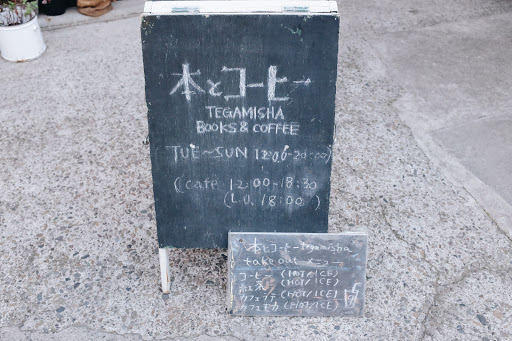 本とコーヒー
TEGAMISHA
BOOKS & COFFEE
TUE～SUN 12:00-20:00
(cafe 12:00-18:30
(L.O. 18:00)
本とコーヒー tegamisha
take out メニュー
コーヒー (HOT/ICE)
紅茶 (HOT/ICE)
カフェラテ (HOT/ICE)
カフェモカ (HOT/ICE)